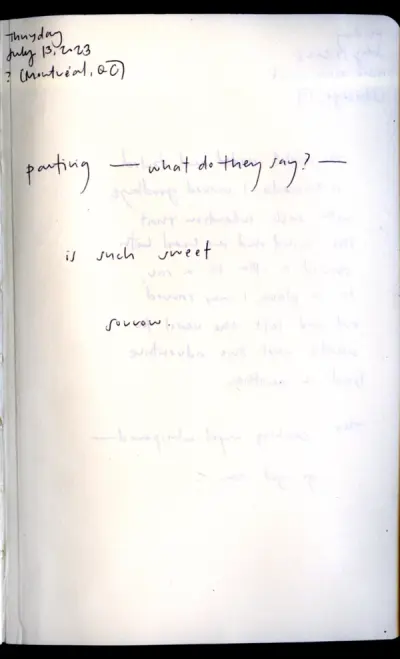 Thursday
July 13, 2023
? (Montréal, QC)
parting — what do they say? —
is such sweet
sorrow